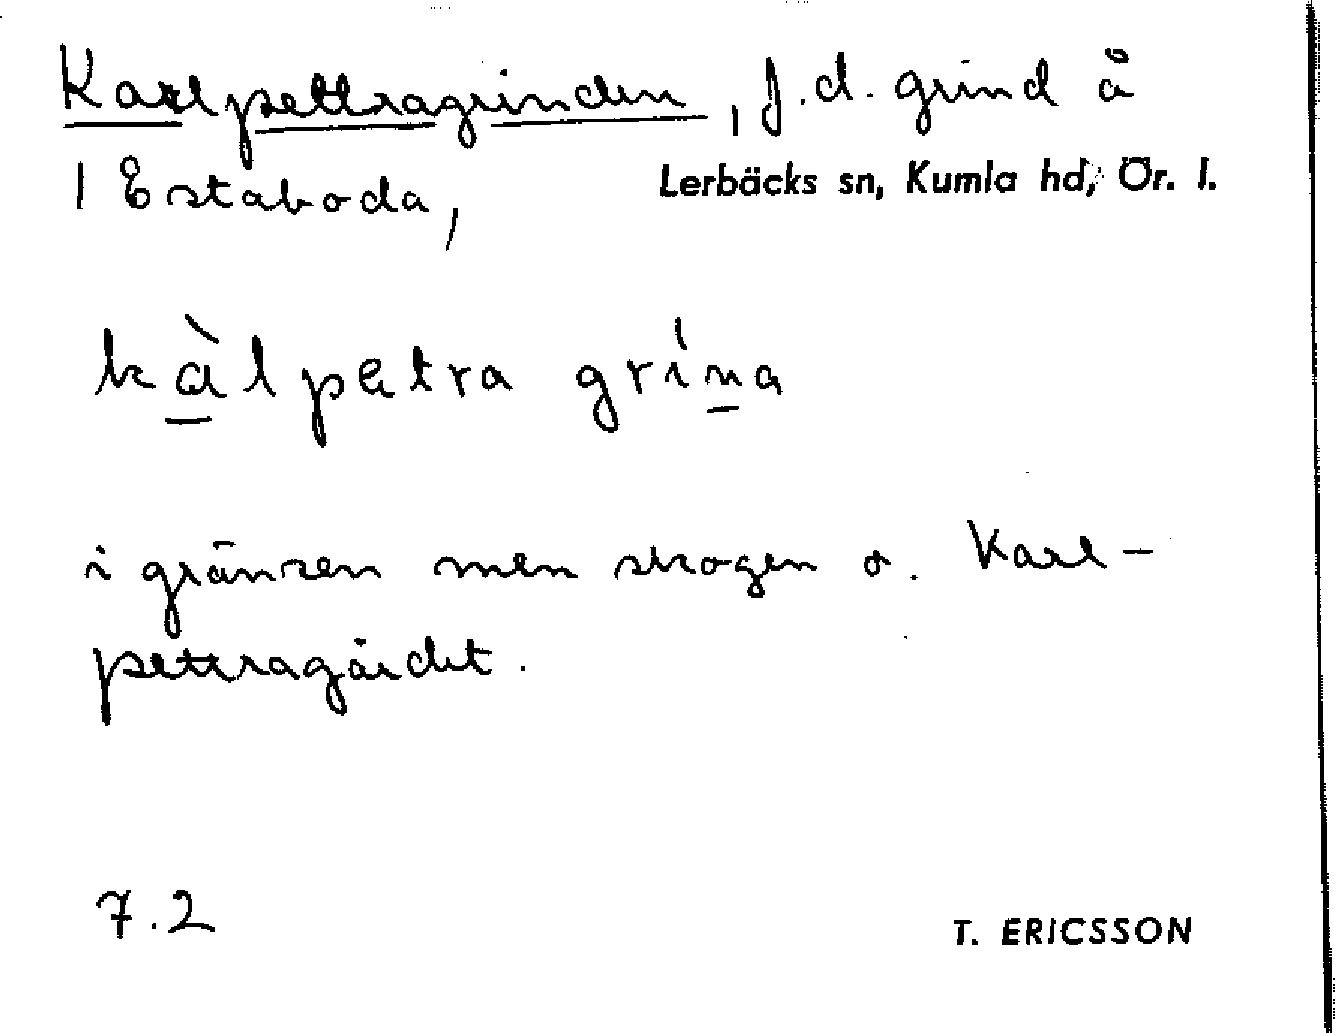 Karlpettragrinden, f.d. grind å
1 Estaboda,
Lerbäcks sn, Kumla hd, Ör. l.
kàlpetra grína
i gränsen men skogen o. Karl-
pettragärdet.
7.2
T. ERICSSON